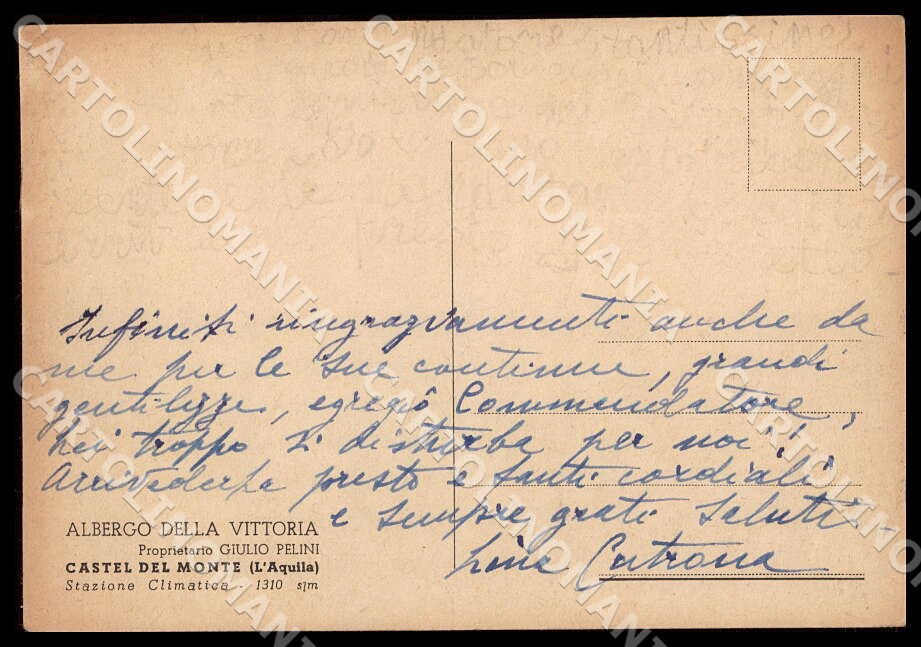 Infiniti ringraziamenti anche da
me per le sue continue, grandi
gentilezze, egregio Commendatore,
Lei troppo si disturba per noi!!
Arrivederla presto e tanti cordiali
e sempre grati saluti -
Lina Cutrona
ALBERGO DELLA VITTORIA
Proprietario GIULIO PELINI
CASTEL DEL MONTE (L'Aquila)
Stazione Climatica - 1310 s/m
CARTOLINOMANIA